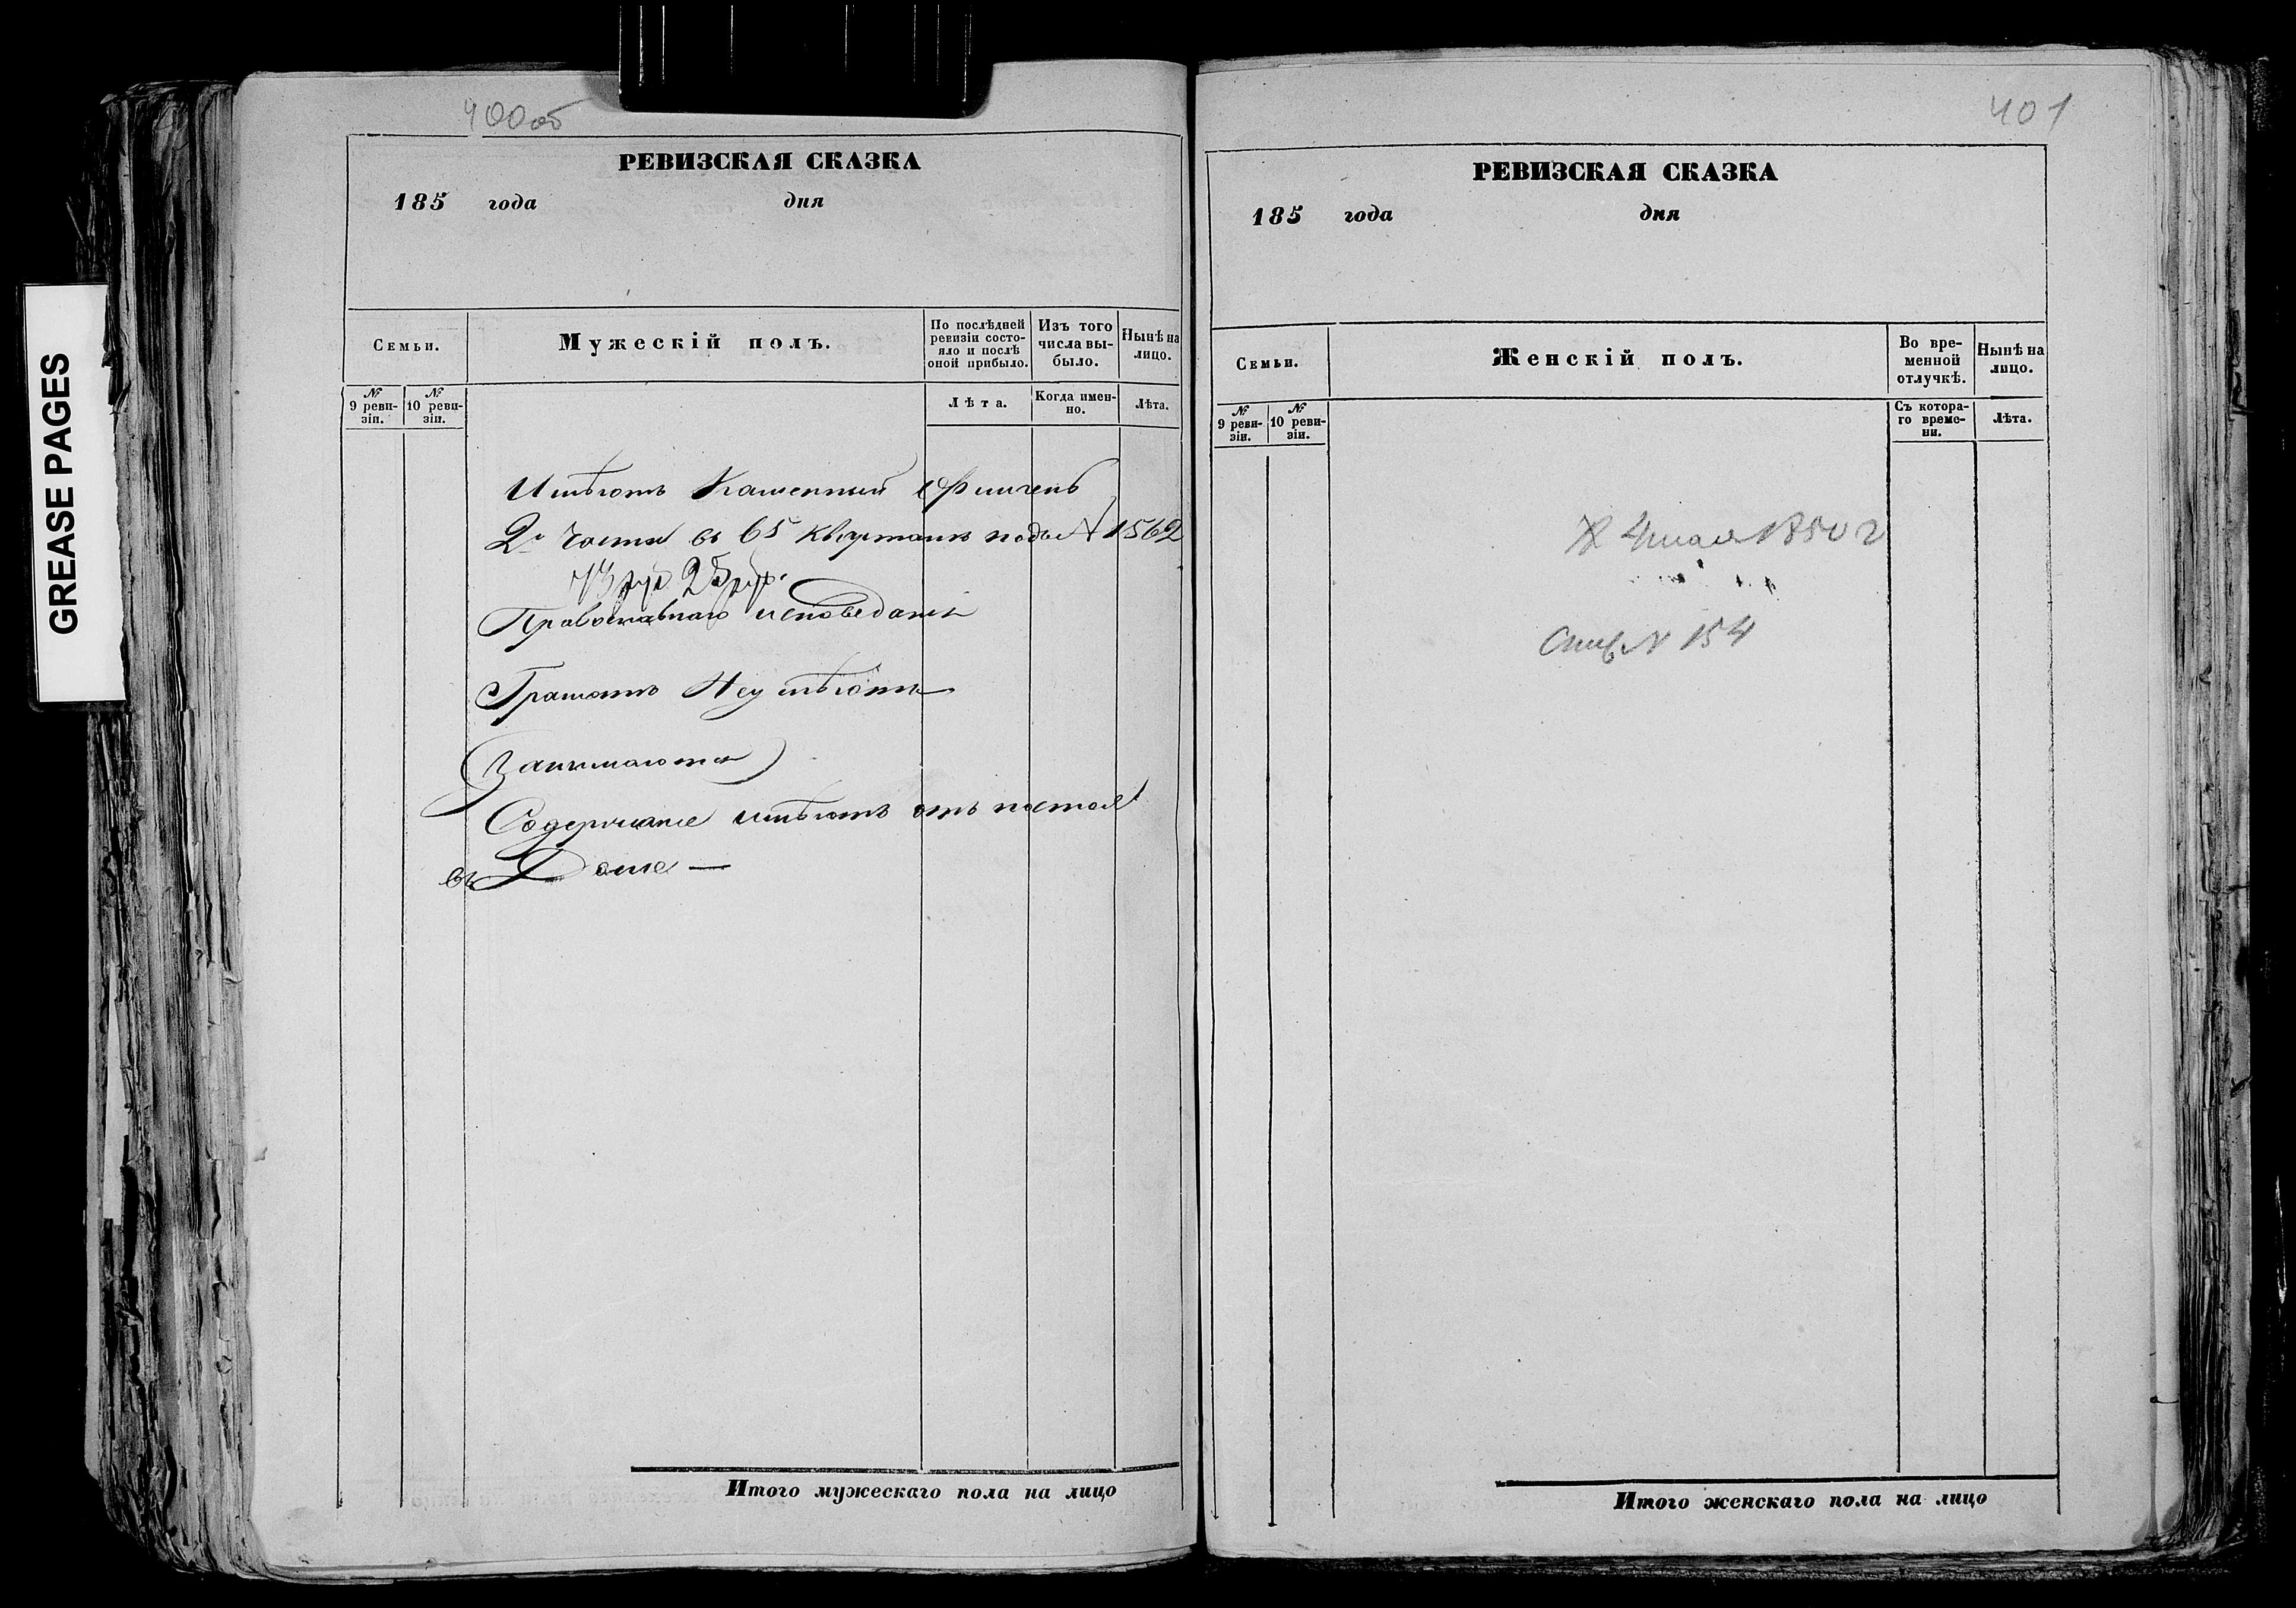 GREASE PAGES
400об
РЕВИЗСКАЯ СКАЗКА
185 года дня
Семьи.
Мужескій полъ.
По послѣдней ревизіи состо-
яло и послѣ
оной прибыло.
Изъ того
числа вы-
было.
Нынѣ на
лицо.
№
9 реви-
зіи.
№
10 реви-
зіи.
Лѣта.
Когда имен-
но.
Лѣта.
Имѣютъ Каменный Флигель
2й части въ 65 кварталѣ подъ № 1562
73 руб 25
Православнаго исповеданія
Грамотѣ Неумѣютъ
Занимаются
Содержаніе имѣютъ отъ постоя
въ Доме —
Итого мужескаго пола на лицо
401
РЕВИЗСКАЯ СКАЗКА
185 года дня
Семьи.
Женскій полъ.
Во вре-
менной
отлучкѣ.
Нынѣ на
лицо.
№
9 реви-
зіи.
№
10 реви-
зіи.
Съ котора-
го време-
ни.
Лѣта.
4 мая 1850 г
№ 154
Итого женскаго пола на лицо